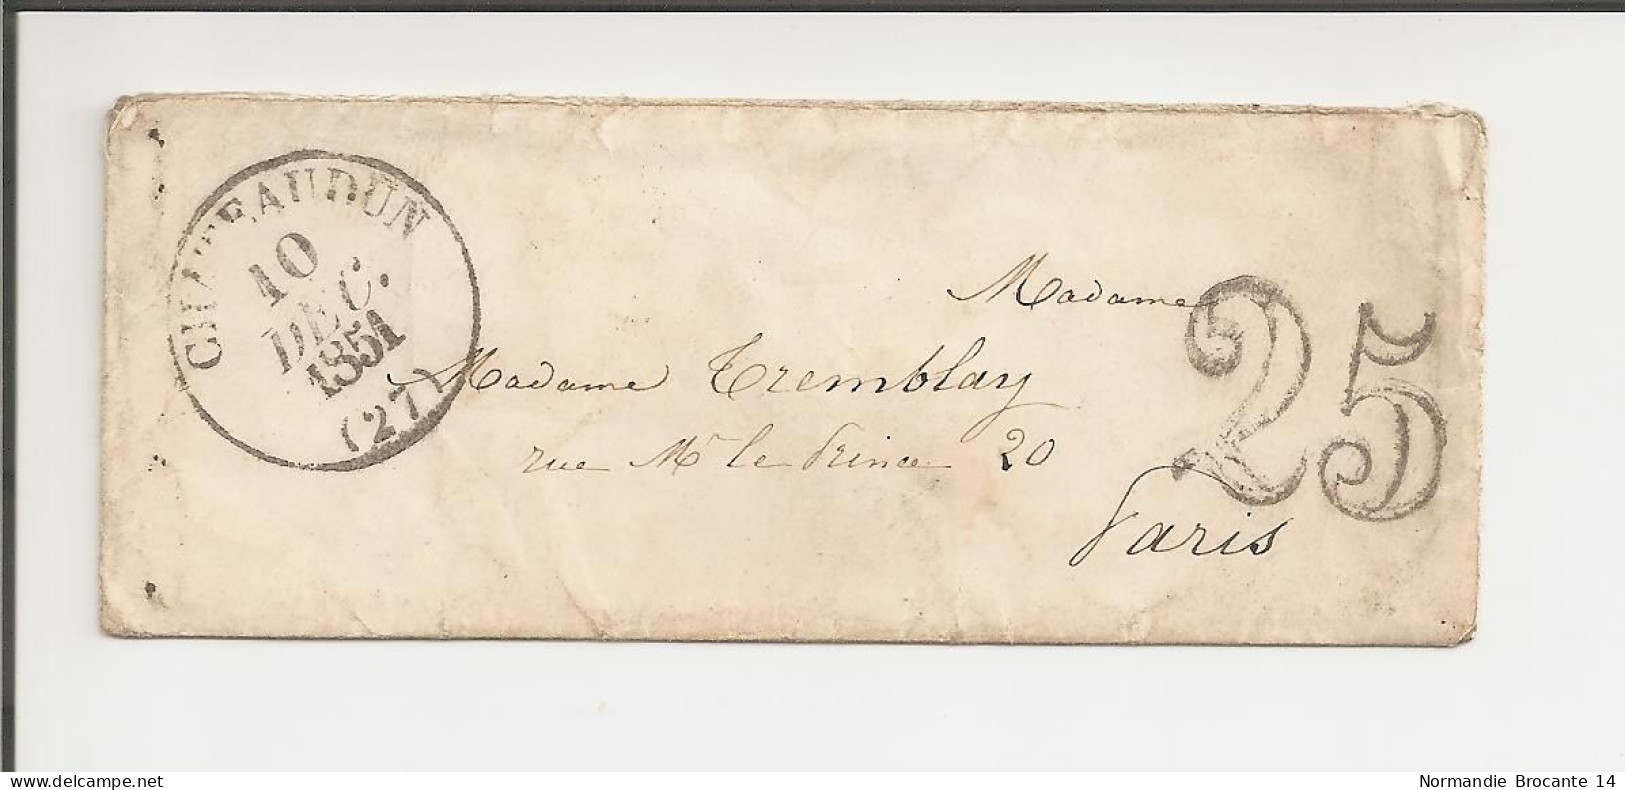 CHATEAUDUN
10
DEC.
1851
(27)
Madame
Madame Tremblay
rue Mr le Prince 20
Paris
25
delcampe.net
Normandie Brocante 14